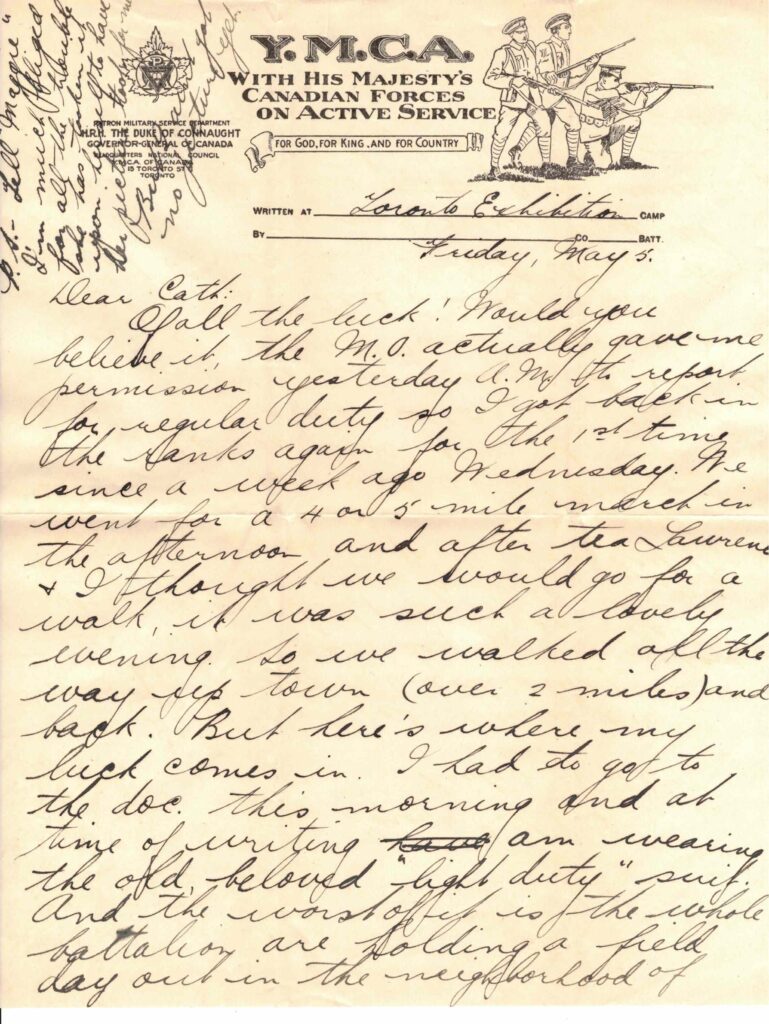 P.S. - Tell "Maggie"
I'm much obliged
for all the trouble
she has taken
upon herself to have
her picture took for me
But
no picture for
yet.
Y.M.C.A.
WITH HIS MAJESTY'S
CANADIAN FORCES
ON ACTIVE SERVICE
FOR GOD, FOR KING, AND FOR COUNTRY
PATRON MILITARY SERVICE DEPARTMENT
H.R.H. THE DUKE OF CONNAUGHT
GOVERNOR-GENERAL OF CANADA
HEADQUARTERS NATIONAL COUNCIL
Y.M.C.A. OF CANADA
15 TORONTO ST
TORONTO
WRITTEN AT Toronto Exhibition CAMP
BY CO BATT.
Friday, May 5.
Dear Cath:
Of all the luck! Would you
believe it, the M.O. actually gave me
permission yesterday A.M. to report
for regular duty so I got back in
the ranks again for the 1st time
since a week ago Wednesday. We
went for a 4 or 5 mile march in
the afternoon and after tea Lawrence
& I thought we would go for a
walk, it was such a lovely
evening. So we walked all the
way up town (over 2 miles) and
back. But here's where my
luck comes in. I had to go to
the doc. this morning and at
time of writing have am wearing
the old, beloved "light duty" suit.
And the worst of it is the whole
battalion are holding a field
day out in the neighborhood of